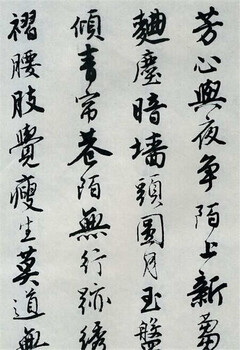 芳心與夜争陌上新蔔
麯塵暗墙頭圓月玉盤
傾青帘巷陌無行跡綉
褶腰肢覺瘦生莫道無